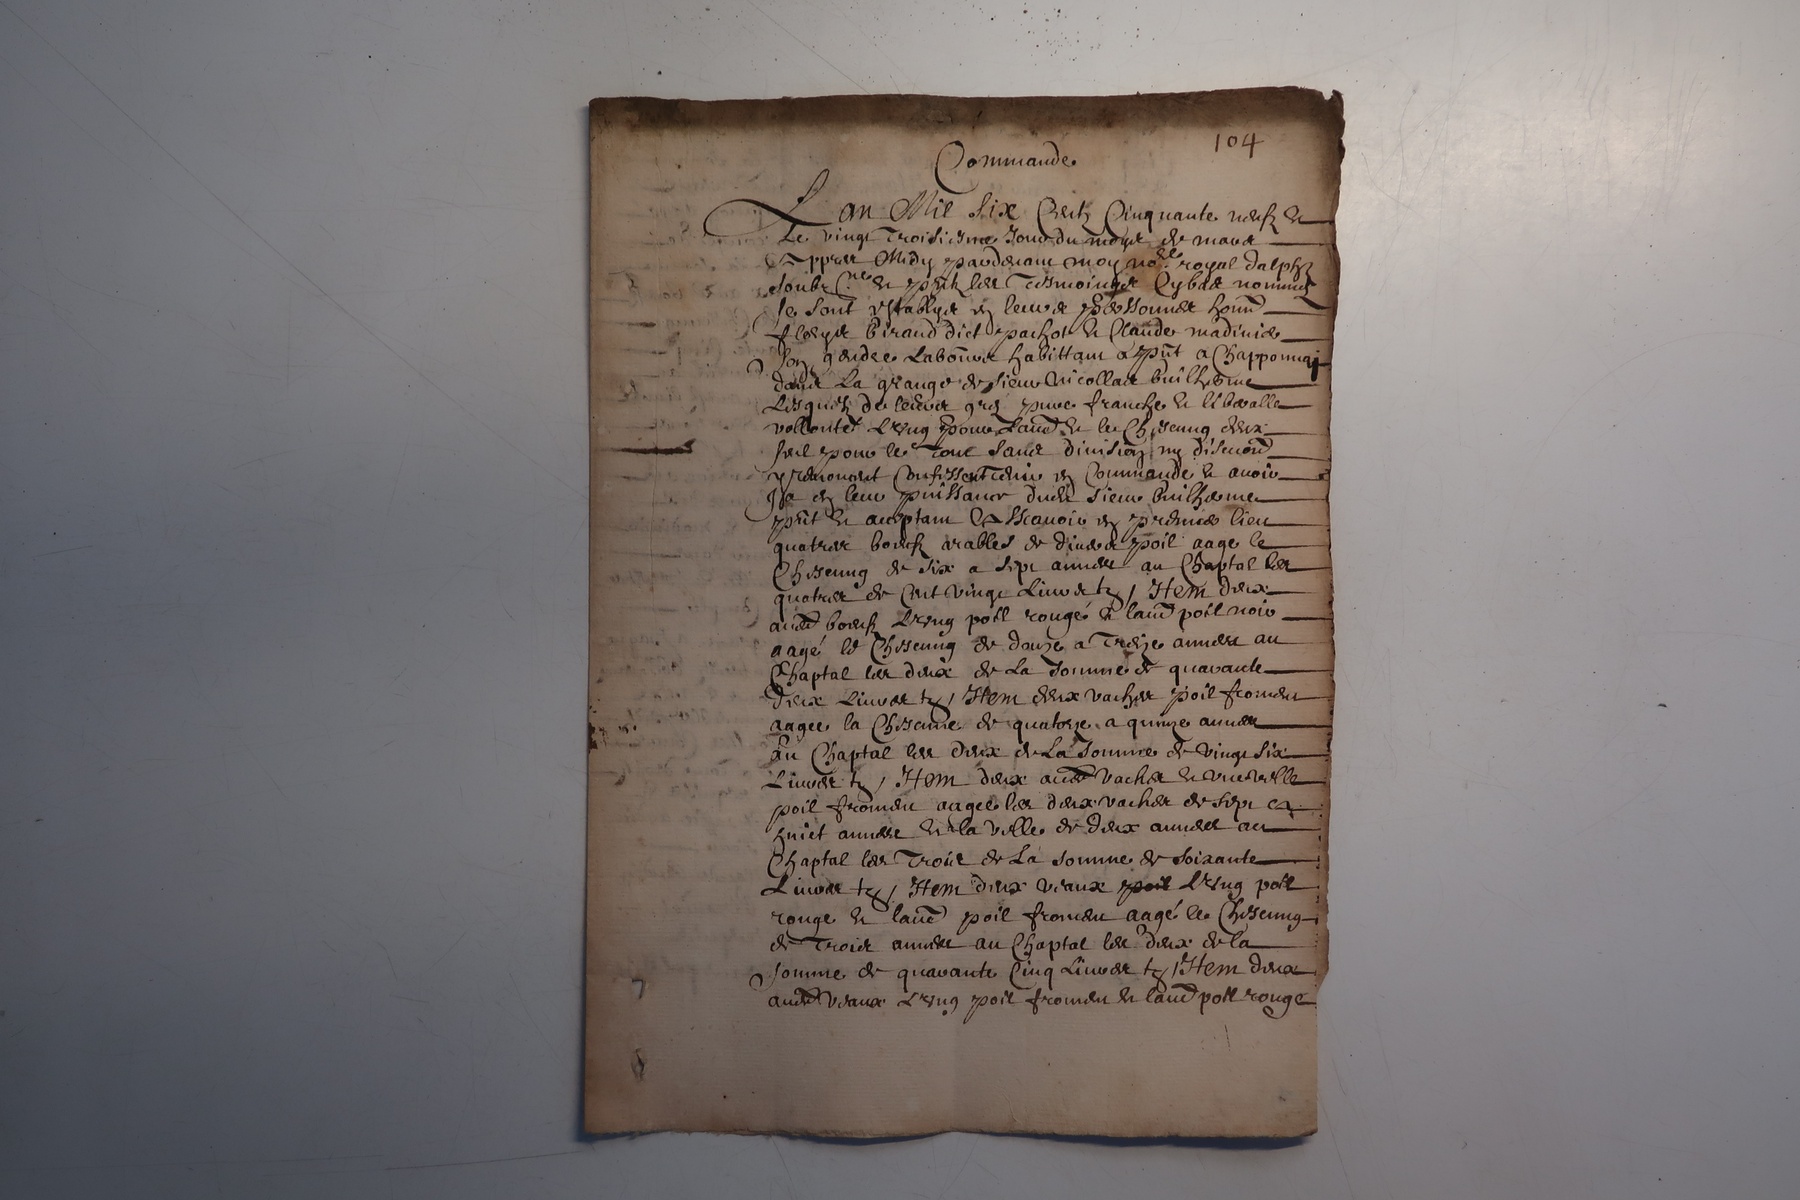 104
Commande
Lan Mil Six Centz Cinquante neufz &
Le vingt Troisiesme Jour du moys de mars
Appres Midy pardevant moy no.re royal dalph.
soubz.ne & pntz les Tesmoingz Cybas nommes
se sont establys en leurs personnes honn.
Birand dict pachot & Claude
son gendre Laboureur habittant a pnt a Chapponnay
dans La grange de sieur Nicollas Builherme
Lesquelz de leurs gres pure franche & liberalle
vollonte Lung pour Lau & le Chascung deux
seul pour le Tout Sans division ny discution
Confissent tenir en Commande & avoir
Ja en leur puissance dudit sieur Builherme
pnt & acceptant Assavoir en premier lieu
quatres boeufz arables de divers poil aage le
Chascung de six a sept annees au Chaptal les
quatres de Cent vingt Livres tz / Item deux
autres boeufz Lung poil rouge & laut poil noir
aagé le Chascung de douze a Treize annees au
Chaptal les deux de La Somme de quarante
deux Livres tz / Item deux vaches poil froment
aagee la Chascune de quatorze a quinze annees
au Chaptal les deux de La Somme de vingt six
Livres tz / Item deux autres vaches & une velle
poil froment aagee les deux vaches de sept a
huict annees & la velle de deux annees au
Chaptal les Trois de La somme de soixante
Livres tz / Item deux veaux poil Lung poil
rouge & laut poil froment aagé le Chascung
de Trois annees au Chaptal les deux de la
somme de quarante Cinq Livres tz / Item deux
autres veaux Lung poil froment & laut poil rouge